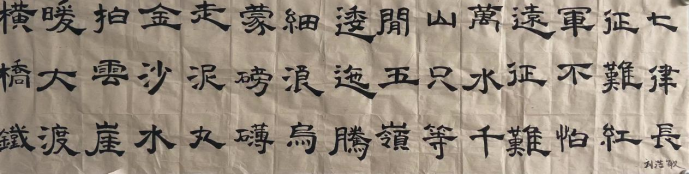 七律長
征難紅
軍不怕
遠征難
萬水千
山只等
閒五嶺
逶迤騰
細浪烏
蒙磅礴
走泥丸
金沙水
拍雲崖
暖大渡
橫橋鐵